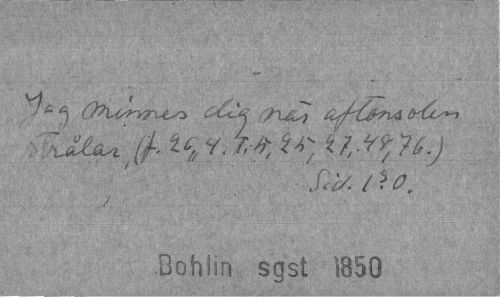 Jag minnes dig när aftonsolen
strålar, (f. 26, 4. T. 5, 25, 27, 48, 76.)
Sid. 130.
Bohlin sgst 1850